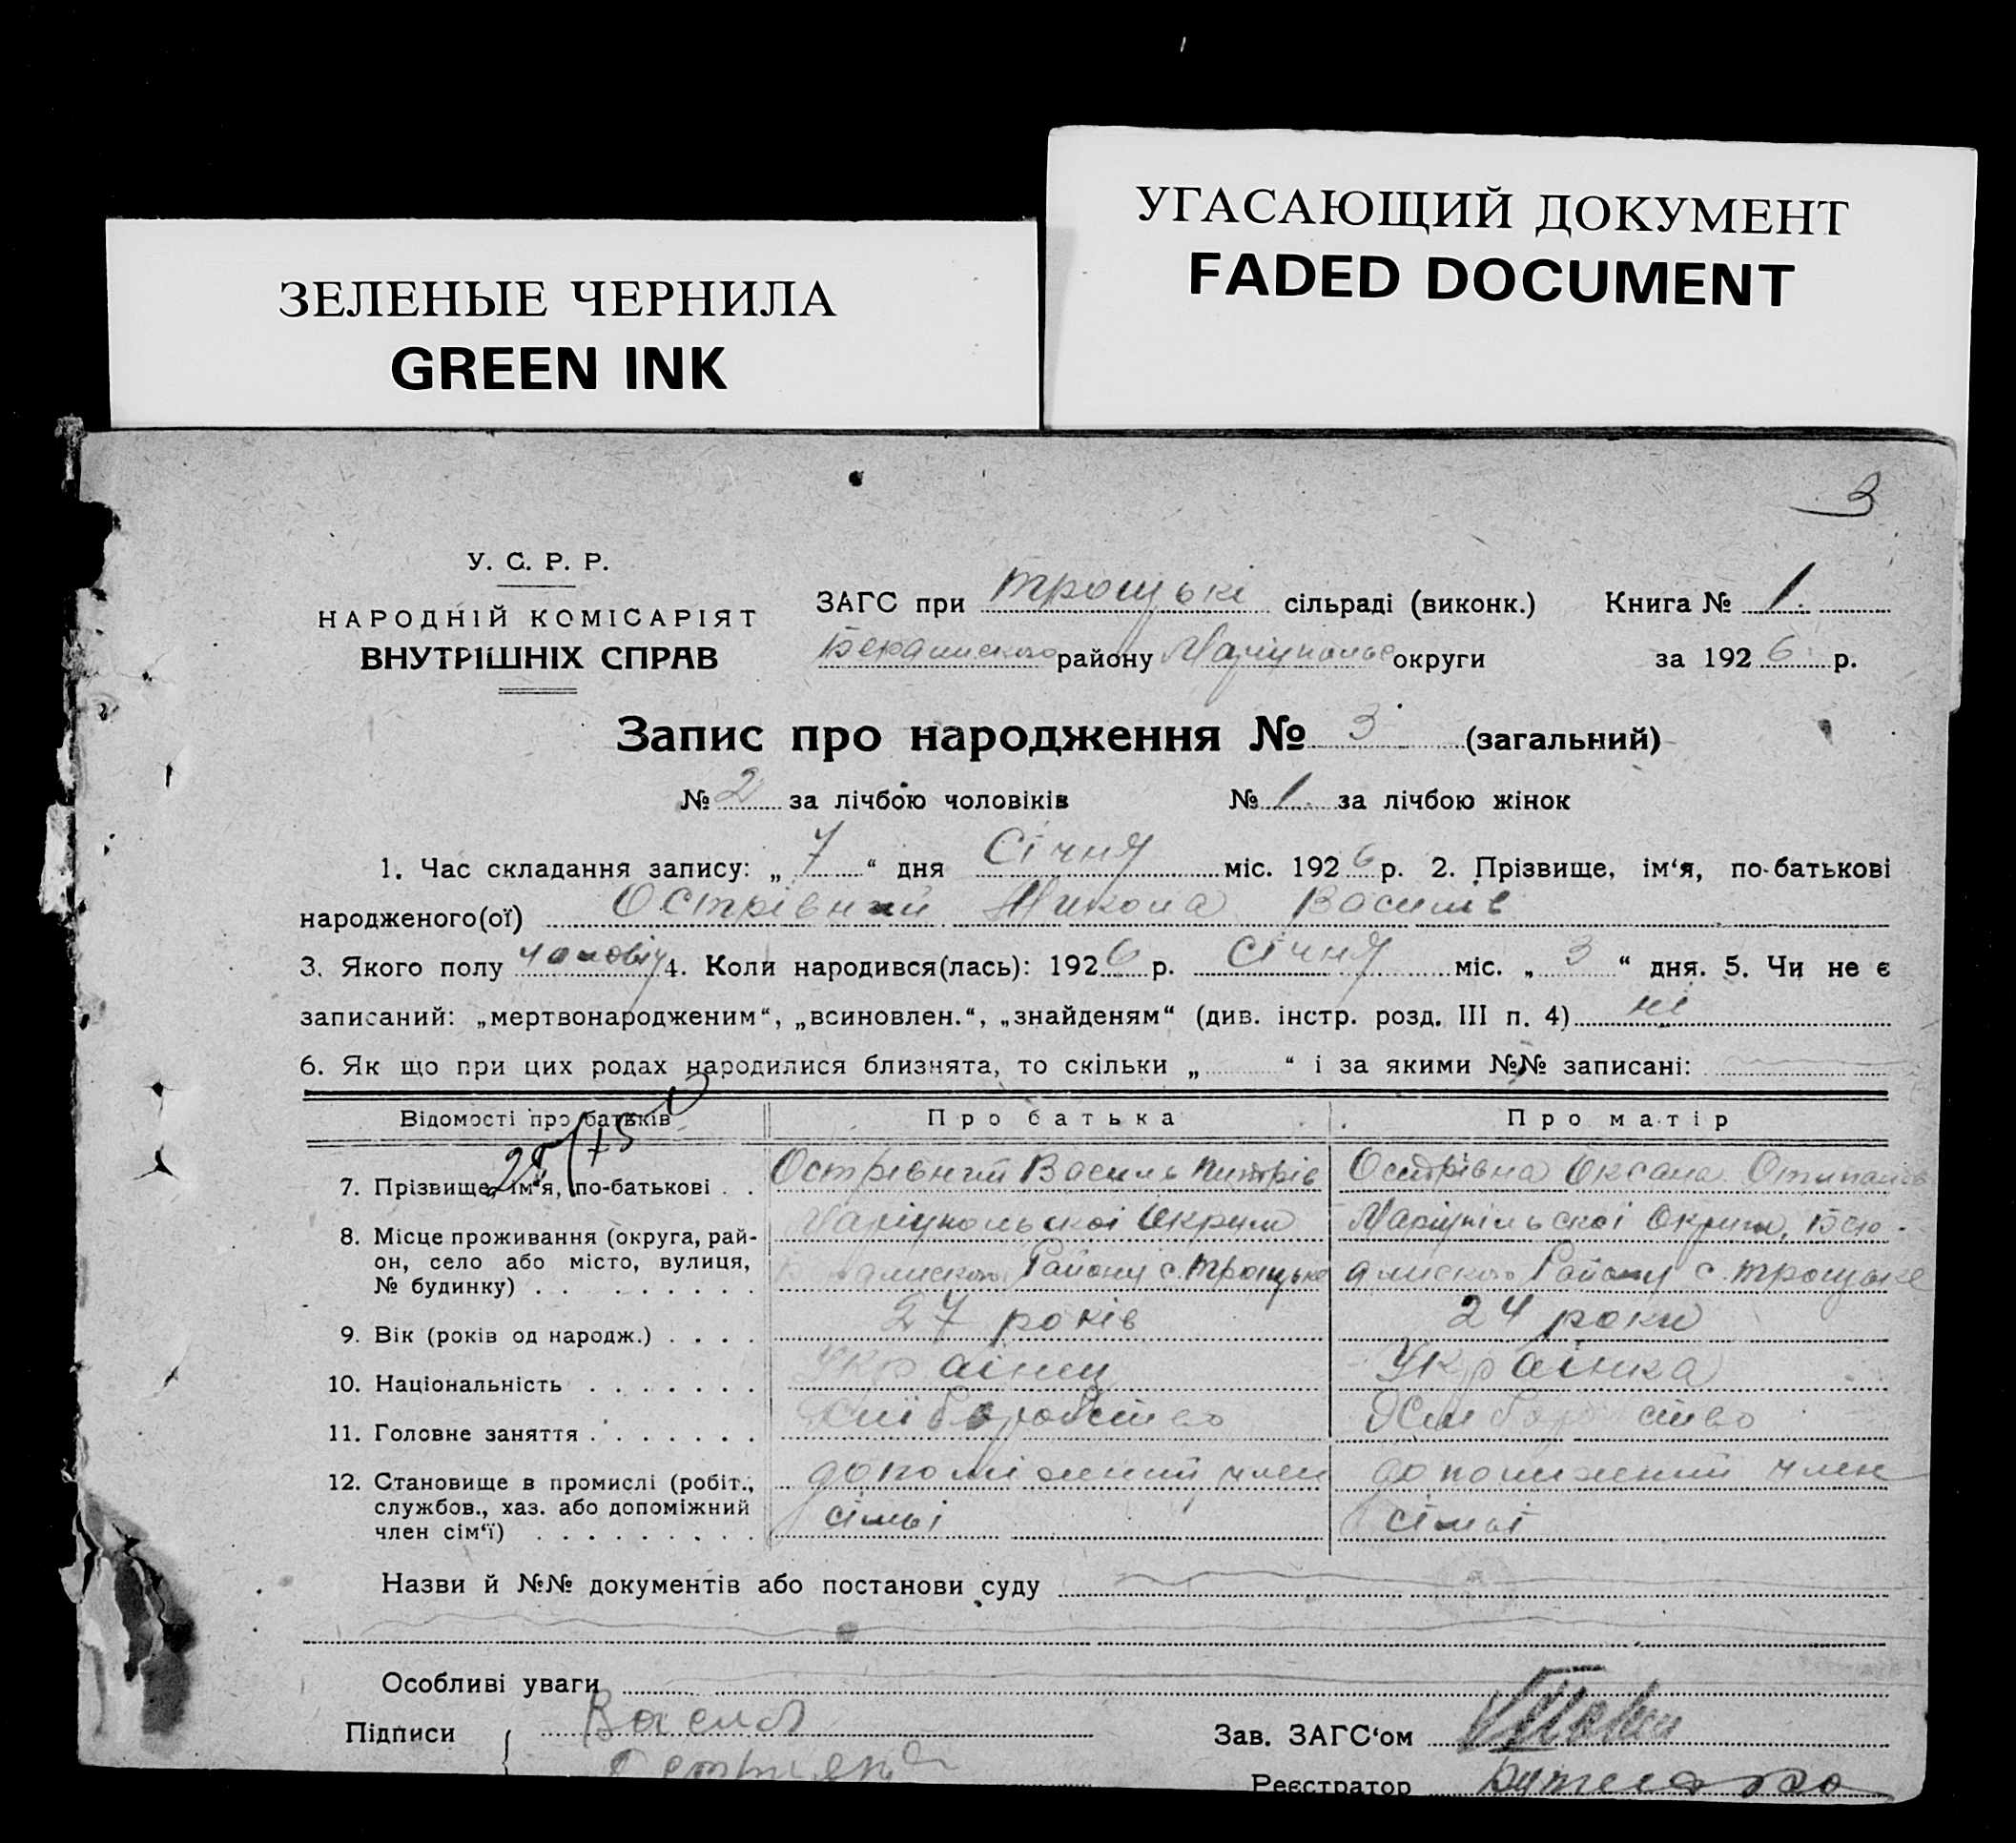 УГАСАЮЩИЙ ДОКУМЕНТ
FADED DOCUMENT
ЗЕЛЕНЫЕ ЧЕРНИЛА
GREEN INK
3
У. С. Р. Р.
НАРОДНІЙ КОМІСАРІЯТ
ВНУТРІШНІХ СПРАВ
ЗАГС при троцькі сільраді (виконк.) Книга № 1.
району Маріупольс округи за 1926 р.
Запис про народження № 3 (загальний)
№ 2 за лічбою чоловіків № 1. за лічбою жінок
1. Час складання запису: „ 7 “ дня Січня міс. 1926 р. 2. Прізвище, ім‘я, по-батькові
народженого(ої) Острівний Микола Василів
3. Якого полу чоловіч 4. Коли народився(лась): 1926 р. Січня міс. „ 3 “ дня. 5. Чи не є
записаний: „мертвонародженим“, „всиновлен.“, „знайденям“ (див. інстр. розд. III п. 4) ні
6. Як що при цих родах народилися близнята, то скільки „ “ і за якими №№ записані:
Відомості про батьків Про батька Про матір
7. Прізвище, ім‘я, по-батькові . . Острівний Василь Острівна Оксана
8. Місце проживання (округа, рай- Маріупольскоі Округи Маріупільскоі Округи,
он, село або місто, вулиця, Району с. Троцьке Району с. Троцьке
№ будинку) . . . . . . . .
9. Вік (років од народж.) . . . . 27 років 24 роки
10. Національність . . . . . . . Українец Українка
11. Головне заняття . . . . . . . Хліборобство Хліборобство
12. Становище в промислі (робіт., допоміжний член допоміжний член
службов., хаз. або допоміжний сімьі сімьі
член сім‘ї) . . . . . . . . .
Назви й №№ документів або постанови суду
Особливі уваги
Підписи Василь
Зав. ЗАГС‘ом
Реєстратор